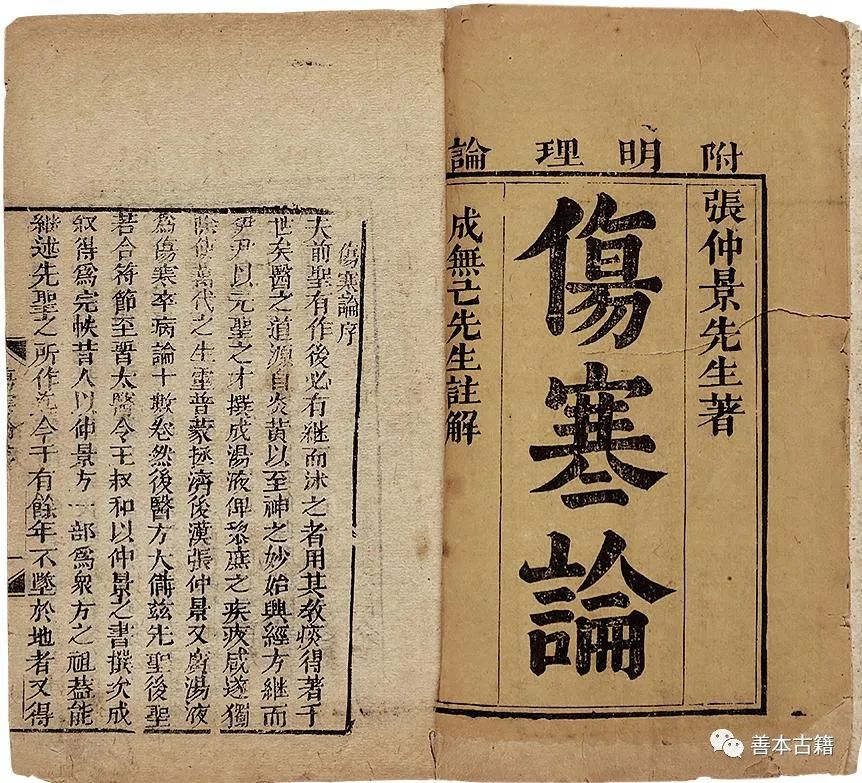 附明理論
張仲景先生著
傷寒論
成無己先生註解
傷寒論序
夫前聖有作後必有継而述之者用其教得著于
世矣醫之道源自炎黃以至神之妙始興經方継而
伊尹以元聖之才撰成湯液俾黎庶之疾疢咸遂獨
除使萬代之生靈普蒙拯濟後漢張仲景又廣湯液
爲傷寒卒病論十數卷然後醫方大備茲先聖後聖
若合符節至晋太醫令王叔和以仲景之書撰次成
叙得爲完帙昔人以仲景方一部爲衆方之祖葢能
継述先聖之所作迄今千有餘年不墜於地者又得
善本古籍